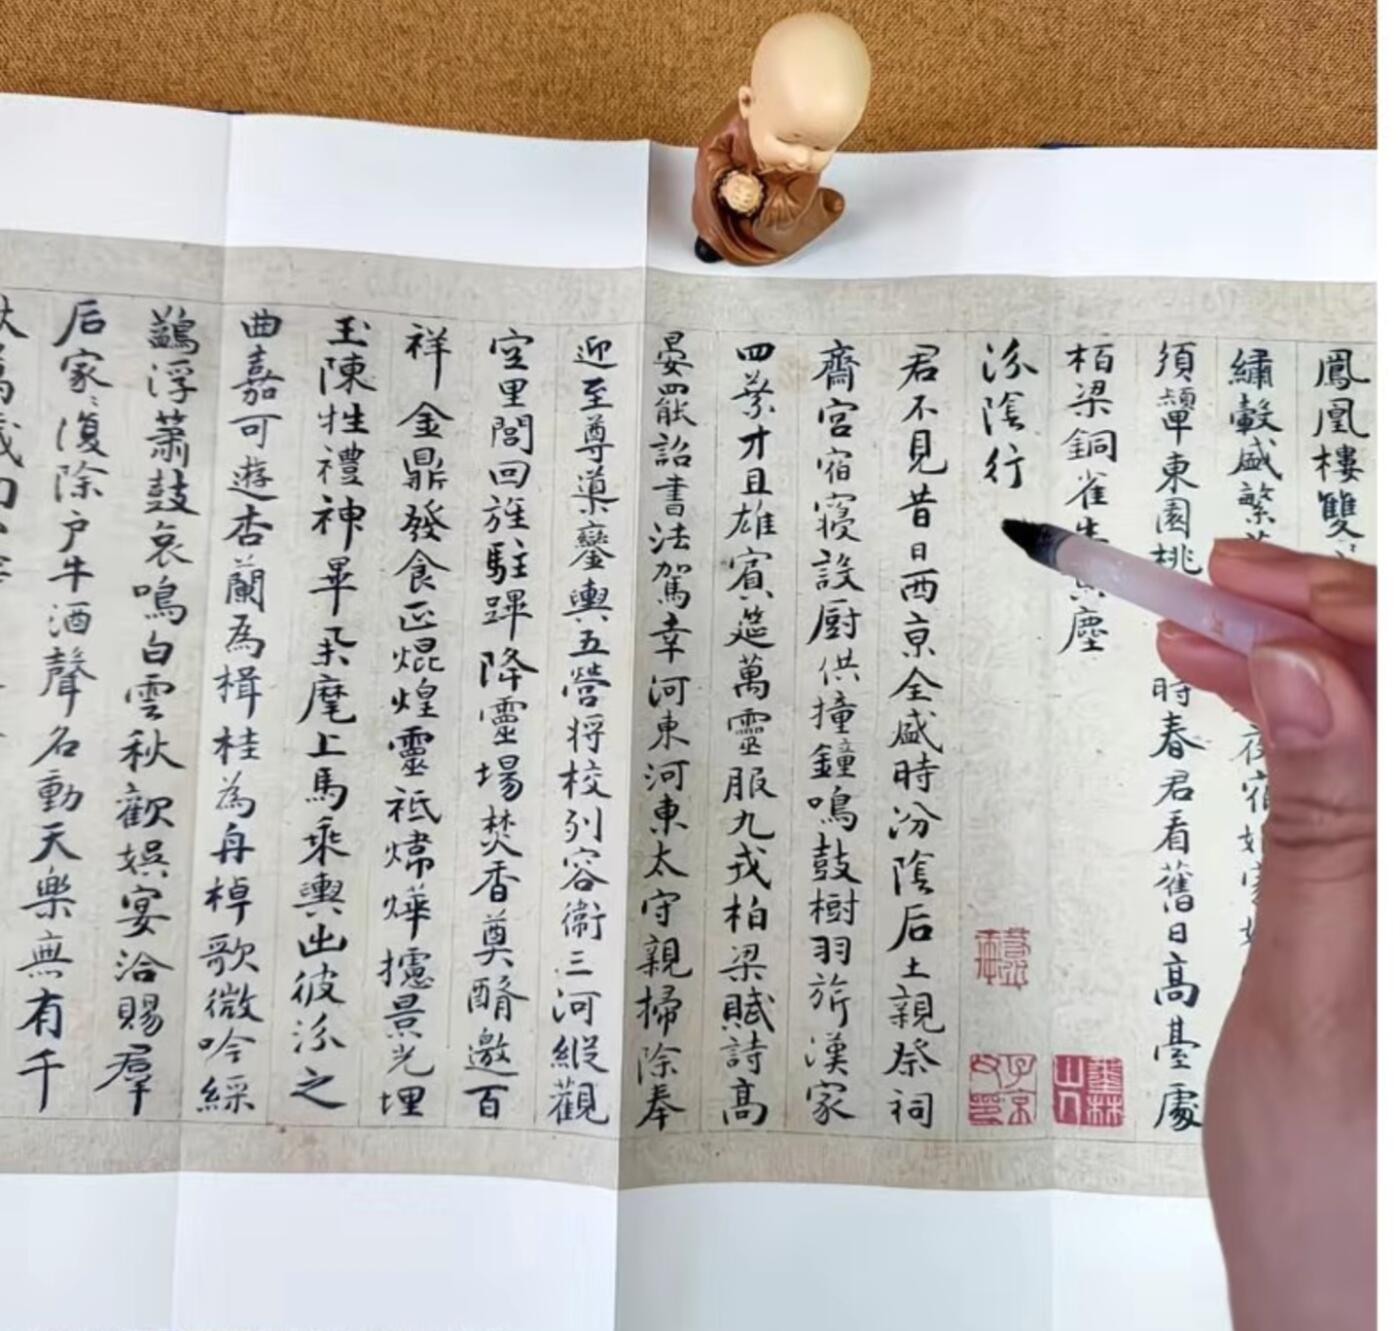 鳳凰樓雙
繡轂盛繁
須顰東園桃時春君看舊日高臺處
栢梁銅雀塵
汾陰行
君不見昔日西亰全盛時汾陰后土親祭祠
齋宮宿寢設厨供撞鐘鳴鼓樹羽旂漢家
四葉才且雄賓筵萬靈服九戎柏梁賦詩高
晏罷詔書法駕幸河東河東太守親掃除奉
迎至尊導鑾輿五營将校列容衞三河縱觀
空里閭回旌駐蹕降靈場焚香奠醑邀百
祥金鼎發食正焜煌靈祇煒燁攄景光埋
玉陳牲禮神畢舉麾上馬乘輿出彼汾之
曲嘉可遊杏蘭為楫桂為舟棹歌微吟綵
鷁浮蕭鼓哀鳴白雲秋歡娛宴洽賜羣
后家〻復除户牛酒聲名動天樂無有千
萬歲
墨林山人
子京父印